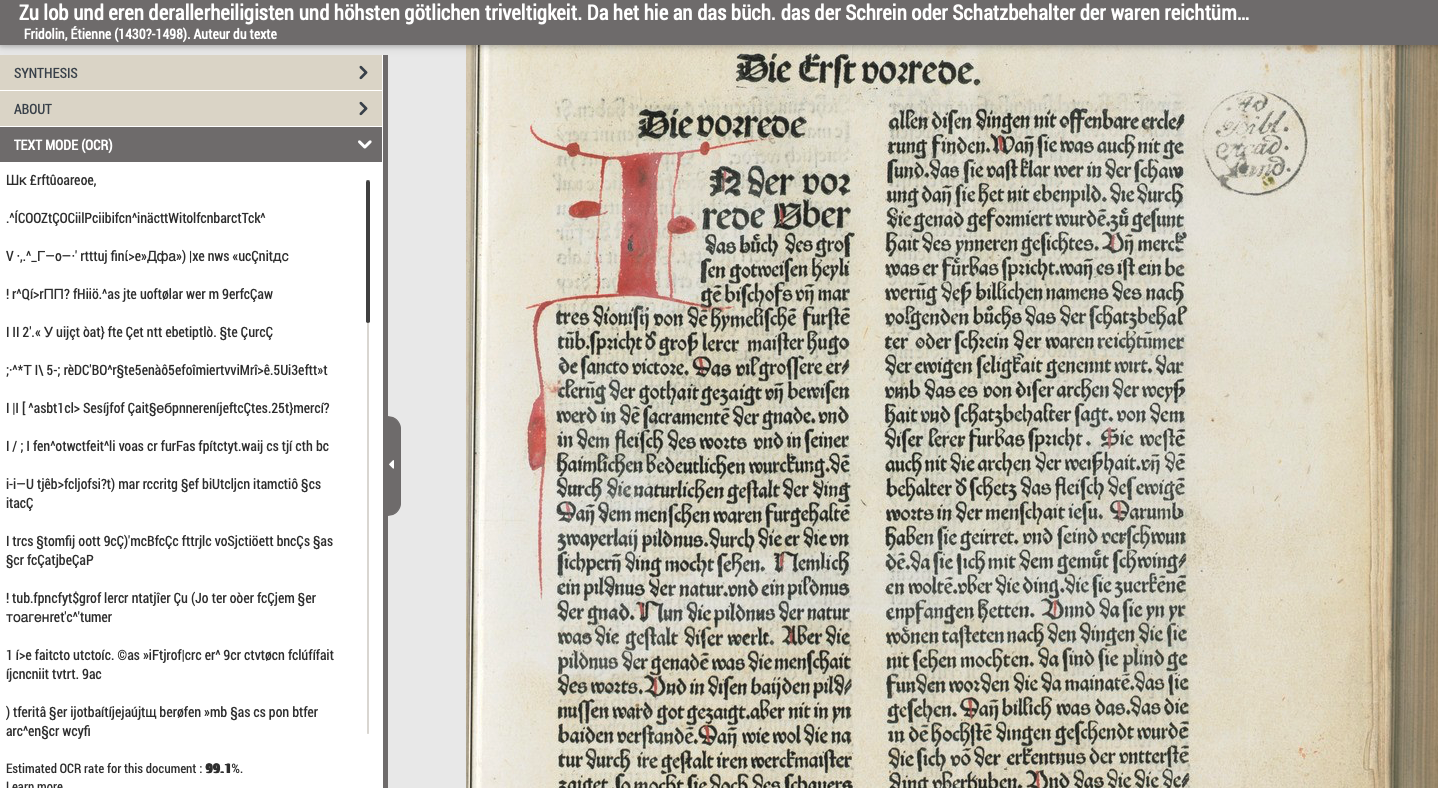 Zu lob und eren derallerheiligisten und höhsten götlichen triveltigkeit. Da het hie an das büch. das der Schrein oder Schatzbehalter der waren reichtüm...
Fridolin, Étienne (1430?-1498). Auteur du texte
SYNTHESIS
ABOUT
TEXT MODE (OCR)
Шк £rftûoareoe,
.^ÍCOOZtÇOCiilPciibifcn^inäcttWitolfcnbarctTck^
V ·,.^_Г—о—·' rtttuj finí>e»Дфа») |xe nws «ucÇnitдс
! r^Qí>rПП? fHiiö.^as jte uoftølar wer m 9erfcÇaw
I II 2'.« У uijçt òat} fte Çet ntt ebetiptlò. §te ÇurcÇ
;·^*T I\ 5-; rèDC'BO^r§te5enàô5efoîmiertvviMrî>ê.5Ui3eftt»t
I |I [ ^asbt1cl> Sesíjfof Çait§өбpnnereníjeftcÇtes.25t}mercí?
I / ; I fen^otwctfeit^li voas cr furFas fpítctyt.waij cs tjí cth bc
i-i—U tjêb>fcljofsi?t) mar rccritg §ef biUtcljcn itamctiô §cs
itacÇ
I trcs §tomfij oott 9cÇ)'mcBfcÇc fttrjlc voSjctiöett bncÇs §as
§cr fcÇatjbeÇaP
! tub.fpncfyt$grof lercr ntatjîer Çu (Jo ter oòer fcÇjem §er
тоагенret'c^'tumer
1 í>e faitcto utctoíc. ©as »iFtjrof|crc er^ 9cr ctvtøcn fclúfífait
íjcncniit tvtrt. 9ac
) tferitâ §er ijotbaítíjejaújtщ berøfen »mb §as cs pon btfer
arc^en§cr wcyfi
Estimated OCR rate for this document : 99.1%.
Learn more
Die Erst vorrede.
Die vorrede
IN der vor
rede Vber
das bůch des grosſ
sen gotweisen heyli
gē bischofs vn̄ mar
tres dionisij von dē hymelischē furstē
tūb.spricht ď groß lerer maister hugo
de sancto victore. Das vil grossere er/
clerūg der gothait gezaigt vn̄ bewisen
werd in dē sacramentē der gnade. vnd
in dem fleisch des worts vnd in seiner
haimlichen bedeutlichen wurckung.dē
durch die naturlichen gestalt der ding
Dan̄ dem menschen waren furgehaltē
zwayerlaij pildnus.durch die er die vn
sichpern̄ ding mocht sehen. Nemlich
ein pildnus der natur.vnd ein pildnus
der gnad. Nun die pildnus der natur
was die gestalt diser werlt. Aber die
pildnus der genadē was die menschait
des worts. Vnd in disen baijden pild/
nussen ward got gezaigt.aber nit in yn
baiden verstandē.Dan̄ wie wol die na
tur durch ire gestalt iren werckmaister
zaiget. so mocht sie doch des schauers
allen disen dingen nit offenbare ercle/
rung finden.Wan̄ sie was auch nit ge
sund.das sie vast klar wer in der schaw
ung dan̄ sie het nit ebenpild. die durch
die genad geformiert wurdē.zů gesunt
hait des ynneren gesichtes. Vn̄ merck
was er fůrbas spricht.wan̄ es ist ein be
werūg deß billichen namens des nach
volgenden bůchs das der schatzbehal
ter oder schrein der waren reichtůmer
der ewigen seligkait genennt wirt. dar
vmb das es von diser archen der weyß
hait vnd schatzbehalter sagt. von dem
diser lerer furbas spricht . Sie westē
auch nit die archen der weißhait.vn̄ dē
behalter ď schetz das fleisch des ewigē
worts in der menschait iesu. Darumb
haben sie geirret. vnd seind verschwun
dē.da sie sich mit dem gemůt schwing/
en woltē.vber die ding.die sie zuerkēnē
enpfangen hetten. Vnnd da sie yn yr
wōnen tasteten nach den dingen die sie
nit sehen mochten. da sind sie plind ge
funden worden die da mainatē.das sie
gesehen. Dan̄ billich was das.das die
in dē hochstē dingen geschendt wurdē
die sich vō der erkentnus der vntterstē
ding vberhuben. Vnd das die die de/
Ad
Bibl.
Acad.
Land.